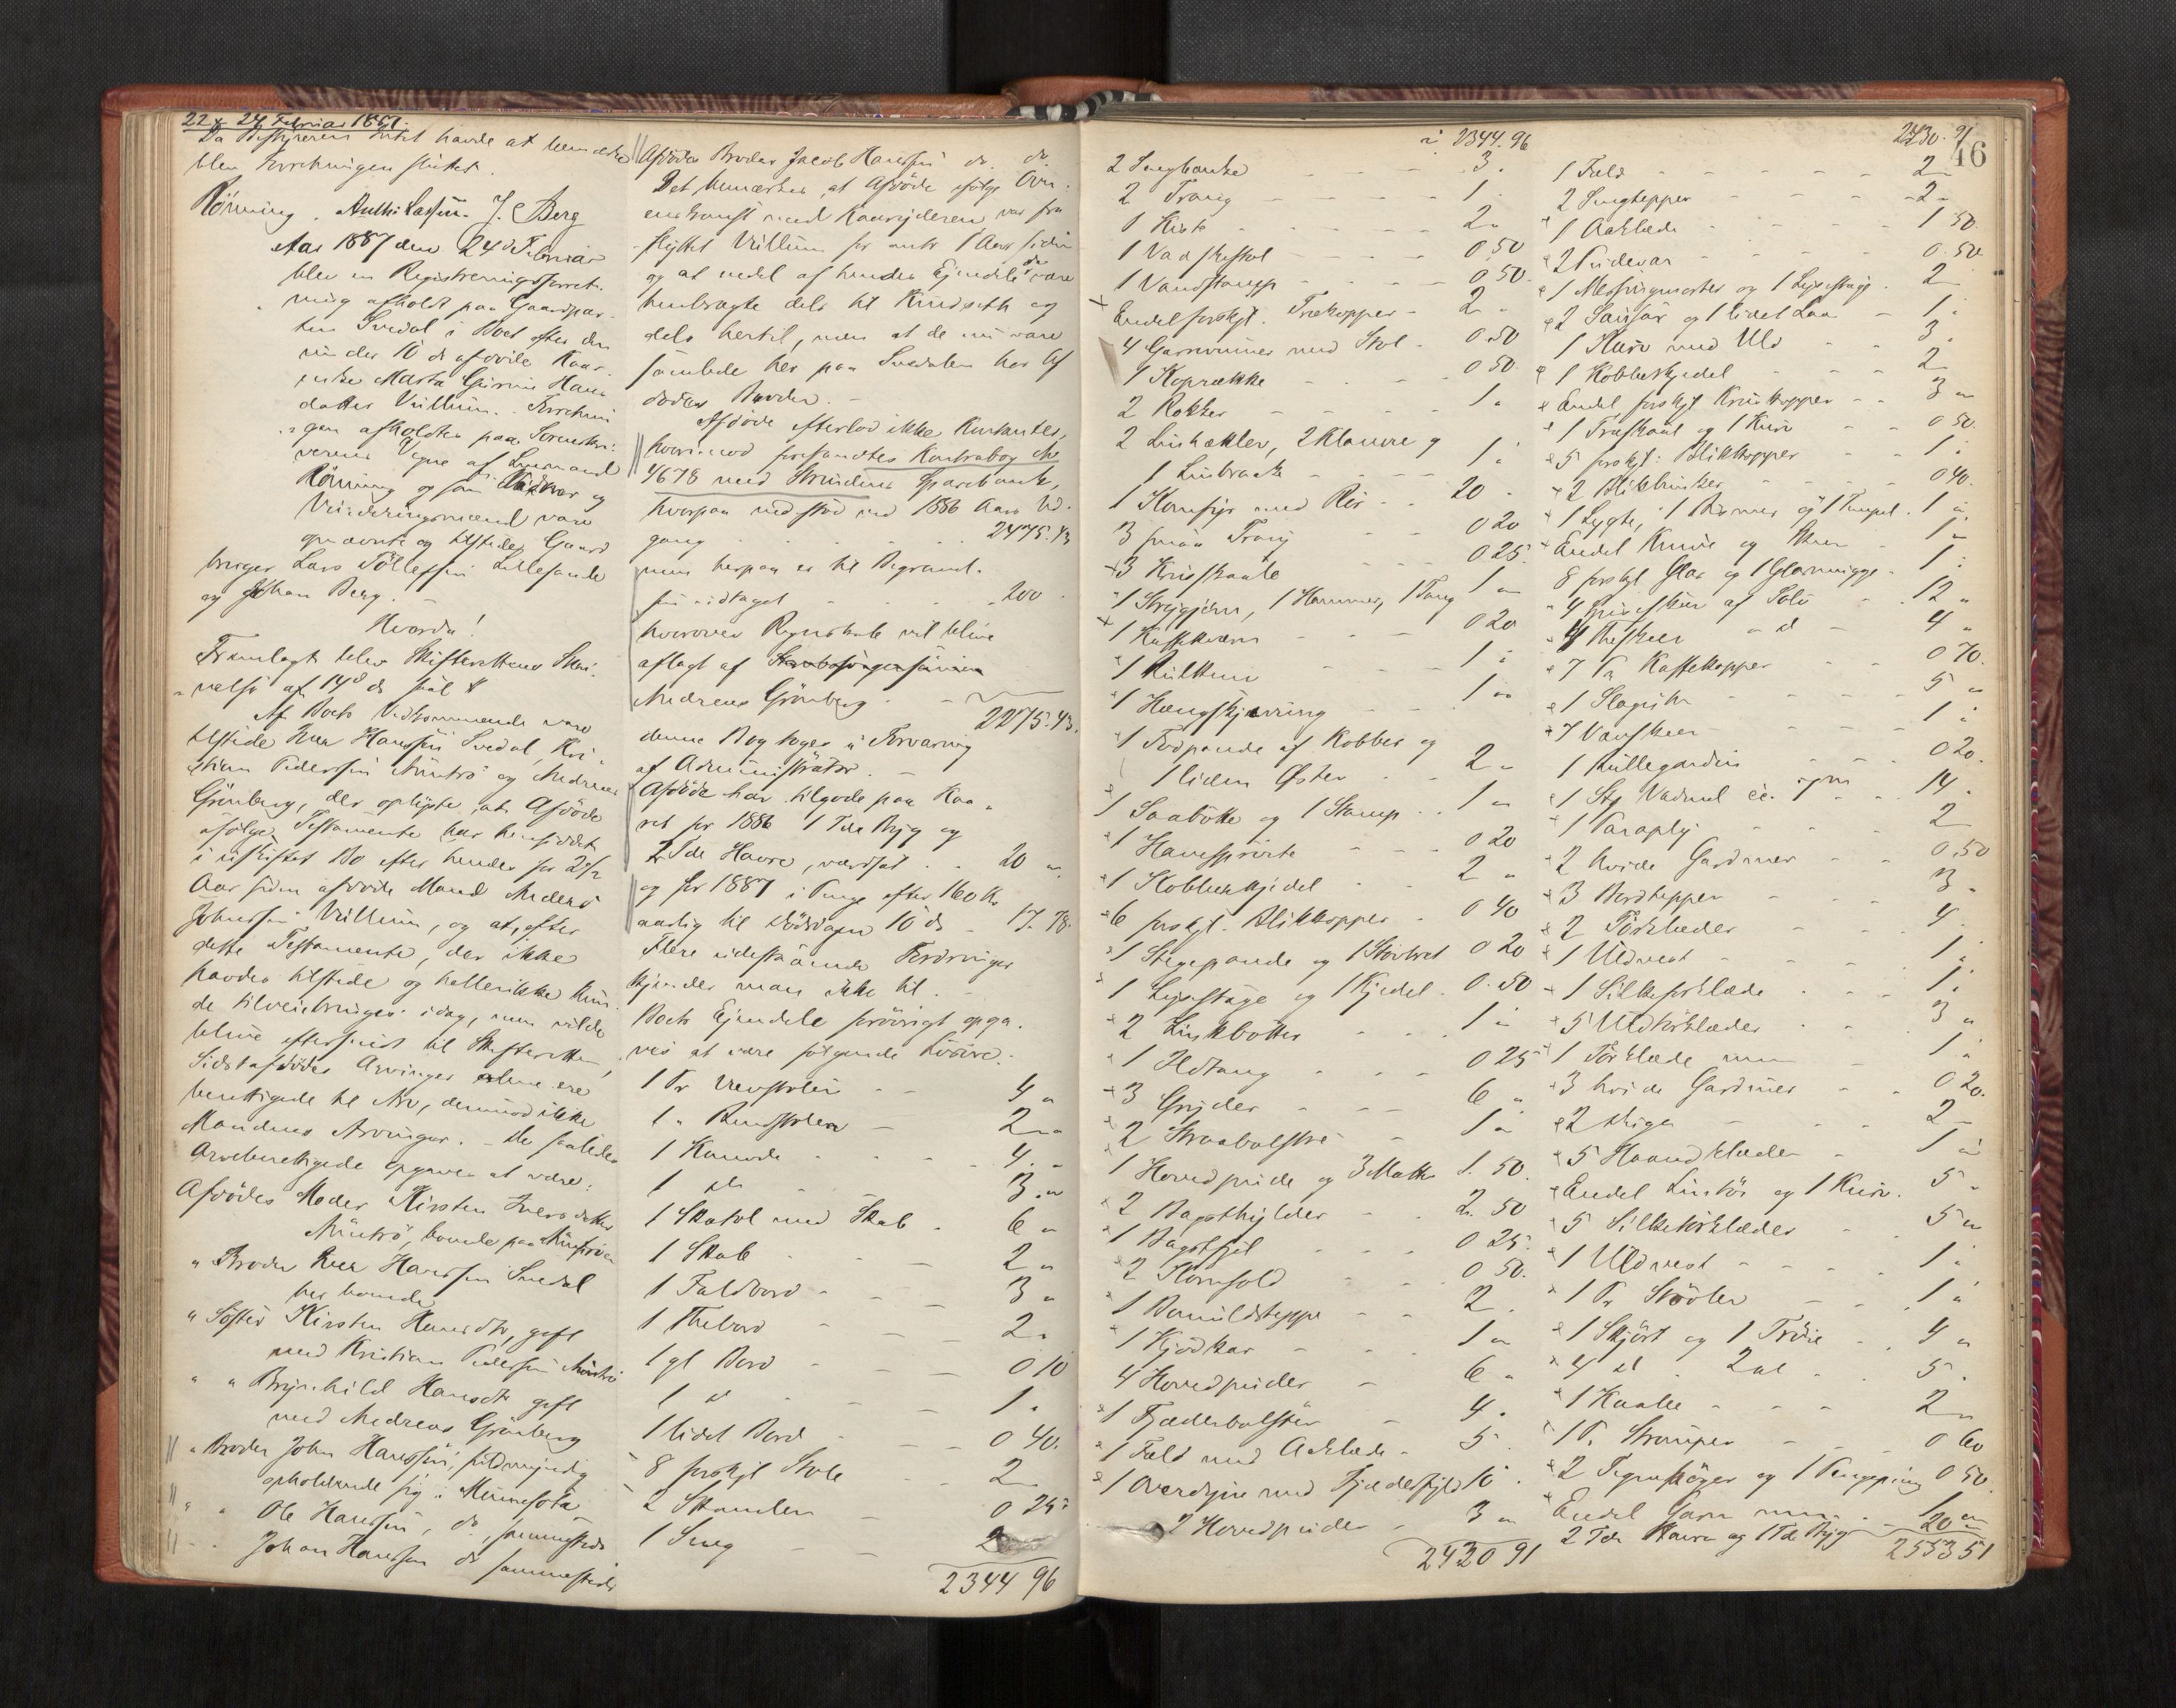 22 & 24 Februar 1887.
Da Bestyreren Intet havde at bemærke
blev Forretningen sluttet.
Rönning. Anth: Lassen. J. Berg
Aar 1887 den 24de Februar
blev en Registreringsforret-
ning afholdt paa Gaardpar-
ten Svedal i Boet efter den
under 10 ds afdöde Kaar
enke Marta Hans
datter Vullum. Forretnin
gen afholdtes paa Sorenskri-
verens Vegne af Lensmand
Rönning og som Vidner og
Vurderingsmænd vare
opnævnte og tilstede Gaard
bruger Lars Töllefsen
og Johan Berg.
Hvorda!
Fremlagt blev Skifterettens Skri-
velse af 14de ds
Af Boets Vedkommende vare
tilstede Hanssen Svedal, Kri-
stian Pedersen og Andreas
Grönberg, der oplyste at Afdöde
ifölge Testamente har hensiddet
i uskiftet Bo efter hendes for 2 1/2
Aar siden afdöde Mand Anders
Johnsen Vullum, og at, efter
dette Testamente, der ikke
havdes tilstede og heller ikke kun-
de tilveiebringes idag, men vilde
blive eftersendt til Skifteretten,
Sidstafdödes Arvinger alene ere
berettigede til Arv, derimod ikke
Mandens Arvinger. - De saaledes
Arveberettigede opgaves at være:
Afdödes Moder Kirsten Iversdatter
boende paa
" Broder Hanssen Svedal
her boende
" Söster Kirsten Hansdtr, gift
med Kristian Pedersen
" " Brynhild Hansdtr gift
med Andreas Grönberg
" Broder John Hanssen, fuldmyndig
opholdende sig i Minnesota
" " Ole Hanssen, do, sammesteds
" " Johan Hanssen do sammesteds
Afdödes Broder Jacob Hanssen do. do.
Det bemærkes, at Afdöde ifölge Over-
enskomst med Kaaryderen var fra
flyttet Vullum for omtr 1 Aar siden
og at endel af hendes Ejendele da vare
henbragte dels til og
dels hertil, men at de nu vare
samlede her paa Svedalen hos Af
dödes Broder. -
Afdöde efterlod ikke Kontanter,
hvorimod forefandtes Kontrabog No
4678 med Strindens Sparebank,
hvorpaa indstod ved 1886 Aars Ud-
gang 2475.43
men herpaa er til Begravel-
sen udtaget 200
hvorover Regnskab vil blive
aflagt af
Andreas Grönberg
2275.43.
denne Bog toges i Forvaring
af Administrator. -
Afdöde har tilgode paa Kaa-
ret for 1886 1 Tde Byg og
2 Tde Havre, værdsat 20 "
og for 1887 i Penge efter 160 Kr
aarlig til Dödsdagen 10 ds 17.78.
Flere udestaaende Fordringer
kjendes man ikke til. -
Boets Ejendele forövrigt opga-
ves at være fölgende Lösöre:
1 Pr 4 "
1 " 2 "
1 Kande 4 "
1 do 3 "
1 Skatol med Skab 6 "
1 Skab 2 "
1 Foldbord 3 "
1 Thebord 2 "
1 gl Bord 0 10
1 do 1 "
1 lidet Bord 0 40.
8 forskjl Stole 2
2 Skamler 0 25
1 Seng 2
2344 96
2344.96
2 Sengbænke 3.
2 Traug 1.
1 Kiste 2 "
1 Vadskestol 0,50
1 Vandstamp 0,50.
Endel forskjl. Trækopper 2 "
4 Garnvinner med Stol 0.50
1 Koprække 0 50.
2 Rokker 1 "
2 Linhækler, 2 Klaure og
1 Linbraak 1 "
1 Komfyr med Rör 20
3 smaa Traug 0 20
3 Krusskaale 0 25.
1 Strygjern, 1 Hammer, 1 Tang 1 "
1 Kaffekværn 0 20
1 1 "
1 Hængskjæring 1 "
1 Fodpande af Kobber og
1 liden Öster 2 "
1 Saabötte og 1 Stamp 1 "
1 0 20
1 Kobberkjedel 2 "
6 forskjl. Blikkopper 0 40
1 Stegepande og 1 0 20
1 Lysestage og 1 Kjedel 0.50
2 Linkbötter 1 "
1 Ildtang 0 25
3 Gryder 6 "
2 Straabolstre 1 "
1 Hovedpude og 3 Matter 1.50.
2 Bagsthylder 2.50
1 Bagstfjel 0 25.
2 Kornsold 0 50.
1 Bomuldsteppe 2.
1 Kjödkar 1 "
4 Hovedpuder 6 "
1 Fjederbolster 4.
1 Feld med Aaklæde 5
1 Overdyne med Fjederfyld 10.
2 Hovedpuder 3 "
2420 91
2430.91
46
1 Feld 2 "
2 Sengtepper 2 "
1 Aaklæde 1 50.
2 Pudevar 0.50
1 Messingmorter og 1 Lysestage 2
2 Sauesax og 1 lidet Laas 1 "
1 Kurv med Uld 3.
1 Kobberkjedel 2
Endel forskjl Kruskopper 3 "
1 Træskaal og 1 Kurv 0 50.
5 forskjl: Blikkopper 1 "
2 0 40.
1 Lygte, 1 Bismer og 1 1 "
Endel Knive og 1 "
8 forskjl Glas og 1 Glasmugge 1 "
4 Spiseskeer af Sölv 12 "
4 Theskeer do 4 "
7 Pr Kaffekopper 0 70.
1 Slaguhr 5 "
7 1 "
1 Rullegardin 0 20.
1 Stk Vadmel 14.
1 Paraply 2
2 hvide Gardiner 0.50
3 Bordtepper 3 "
2 Törklæder 4
1 Uldvest 1 "
1 Silkeforklæde 1 "
5 Uldtörklæder 3 "
1 Törklæde 1 "
3 hvide Gardiner 0 20.
2 2 "
5 Haandklæder 1 "
Endel Lintöi og 1 Kurv. 5 "
5 Silketörklæder 5 "
1 Uldvest 1 "
1 Pr Stövler 1 "
1 Skjört og 1 Tröie 4 "
4 do 2 do 5.
1 Kaabe 2 "
1 Pr Strömper 0 60
2 og 1 Pengepung 0 50.
Endel Garn 1 "
2 Tdr Havre og 1 Tde Byg 20 "
2553 51